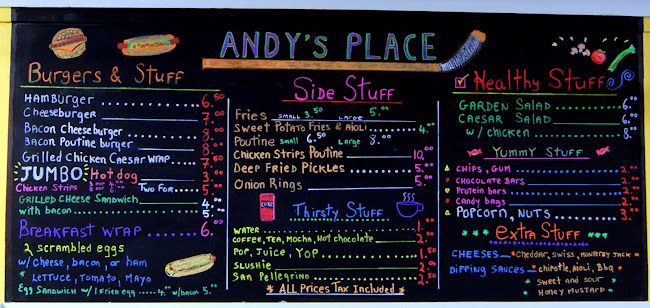 ANDY'S PLACE
Burgers & Stuff
HAMburger 6.50
Cheeseburger 7.00
Bacon Cheeseburger 8.00
Bacon Poutine burger 8.00
Grilled Chicken Caesar WRAP 7.50
JUMBO Hot dog 3.00
CHICKEN STRIPS TWO FOR 5.00
GRILLED CHEESE SANDWICH 4.00
with bacon 5.00
BREAKFAST WRAP 6.00
2 scrambled eggs
w/ cheese, bacon, or ham
* LETTUCE, TOMATO, MAYO
Egg SANDWICH w/ 1 Fried egg 4.00 w/bacon 5.00
Side Stuff
Fries SMALL 3.50 LARGE 5.00
Sweet Potato Fries & Aioli 4.00
Poutine small 6.50 Large 8.00
Chicken Strips Poutine 10.00
Deep Fried Pickles 5.00
Onion Rings 5.00
Thirsty Stuff
WATER 1.00
COFFEE, TEA, Mocha, Hot chocolate 2.00
Pop, Juice, YOP 1.50
Slushie 2.00
San Pellegrino 2.50
* ALL Prices TAX Included *
Healthy Stuff
GARDEN SALAD 6.00
CAESAR SALAD 6.00
w/ chicken 8.00
YUMMY STUFF
CHIPS, GUM 2.00
CHOCOLATE BARS 2.00
Protein bars 2.00
Candy bags 2.00
POPCORN, NUTS 3.00
EXTRA STUFF
CHEESES - *Cheddar, Swiss, Monterey Jack
DIPPING SAUCES - chipotle, Aioli, Bbq
* SWEET AND SOUR
* HONEY MUSTARD